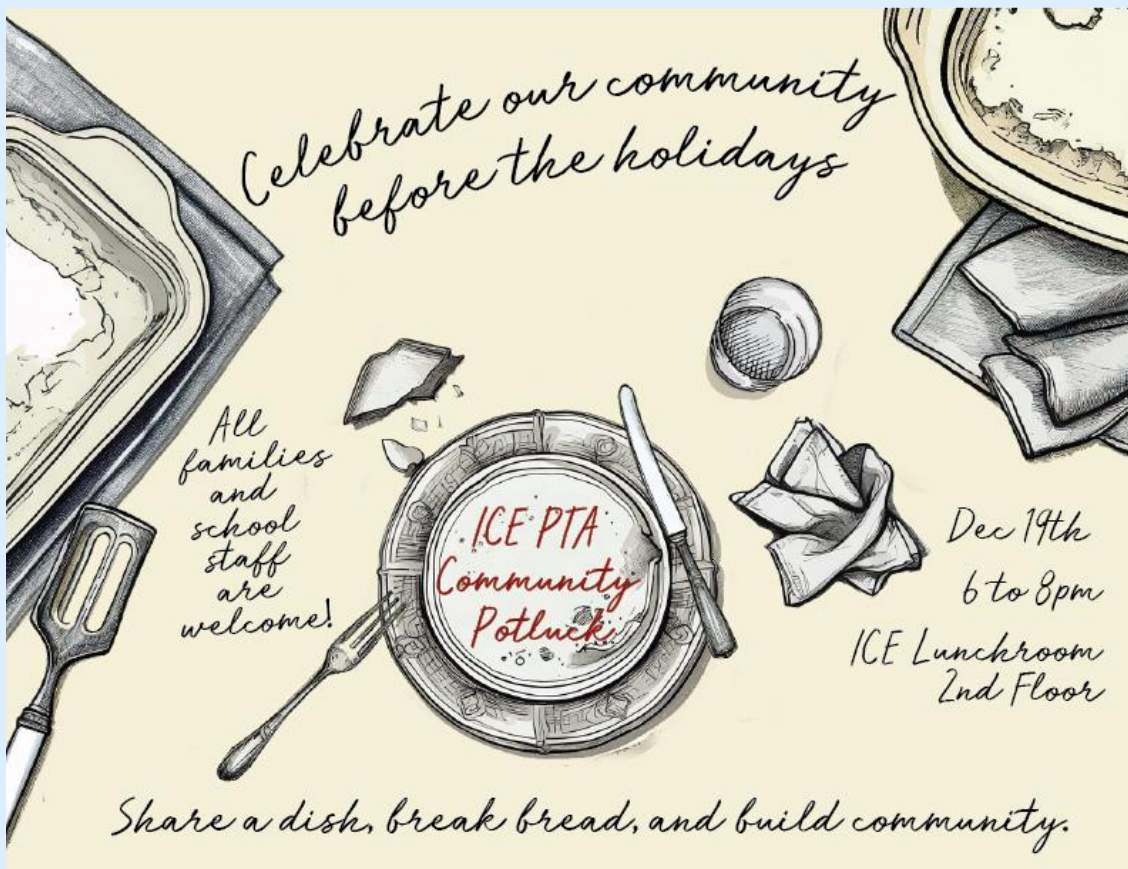 Celebrate our community
before the holidays
All
families
and
school
staff
are
welcome!
ICE PTA
Community
Potluck
Dec 19th
6 to 8pm
ICE Lunchroom
2nd Floor
Share a dish, break bread, and build community.